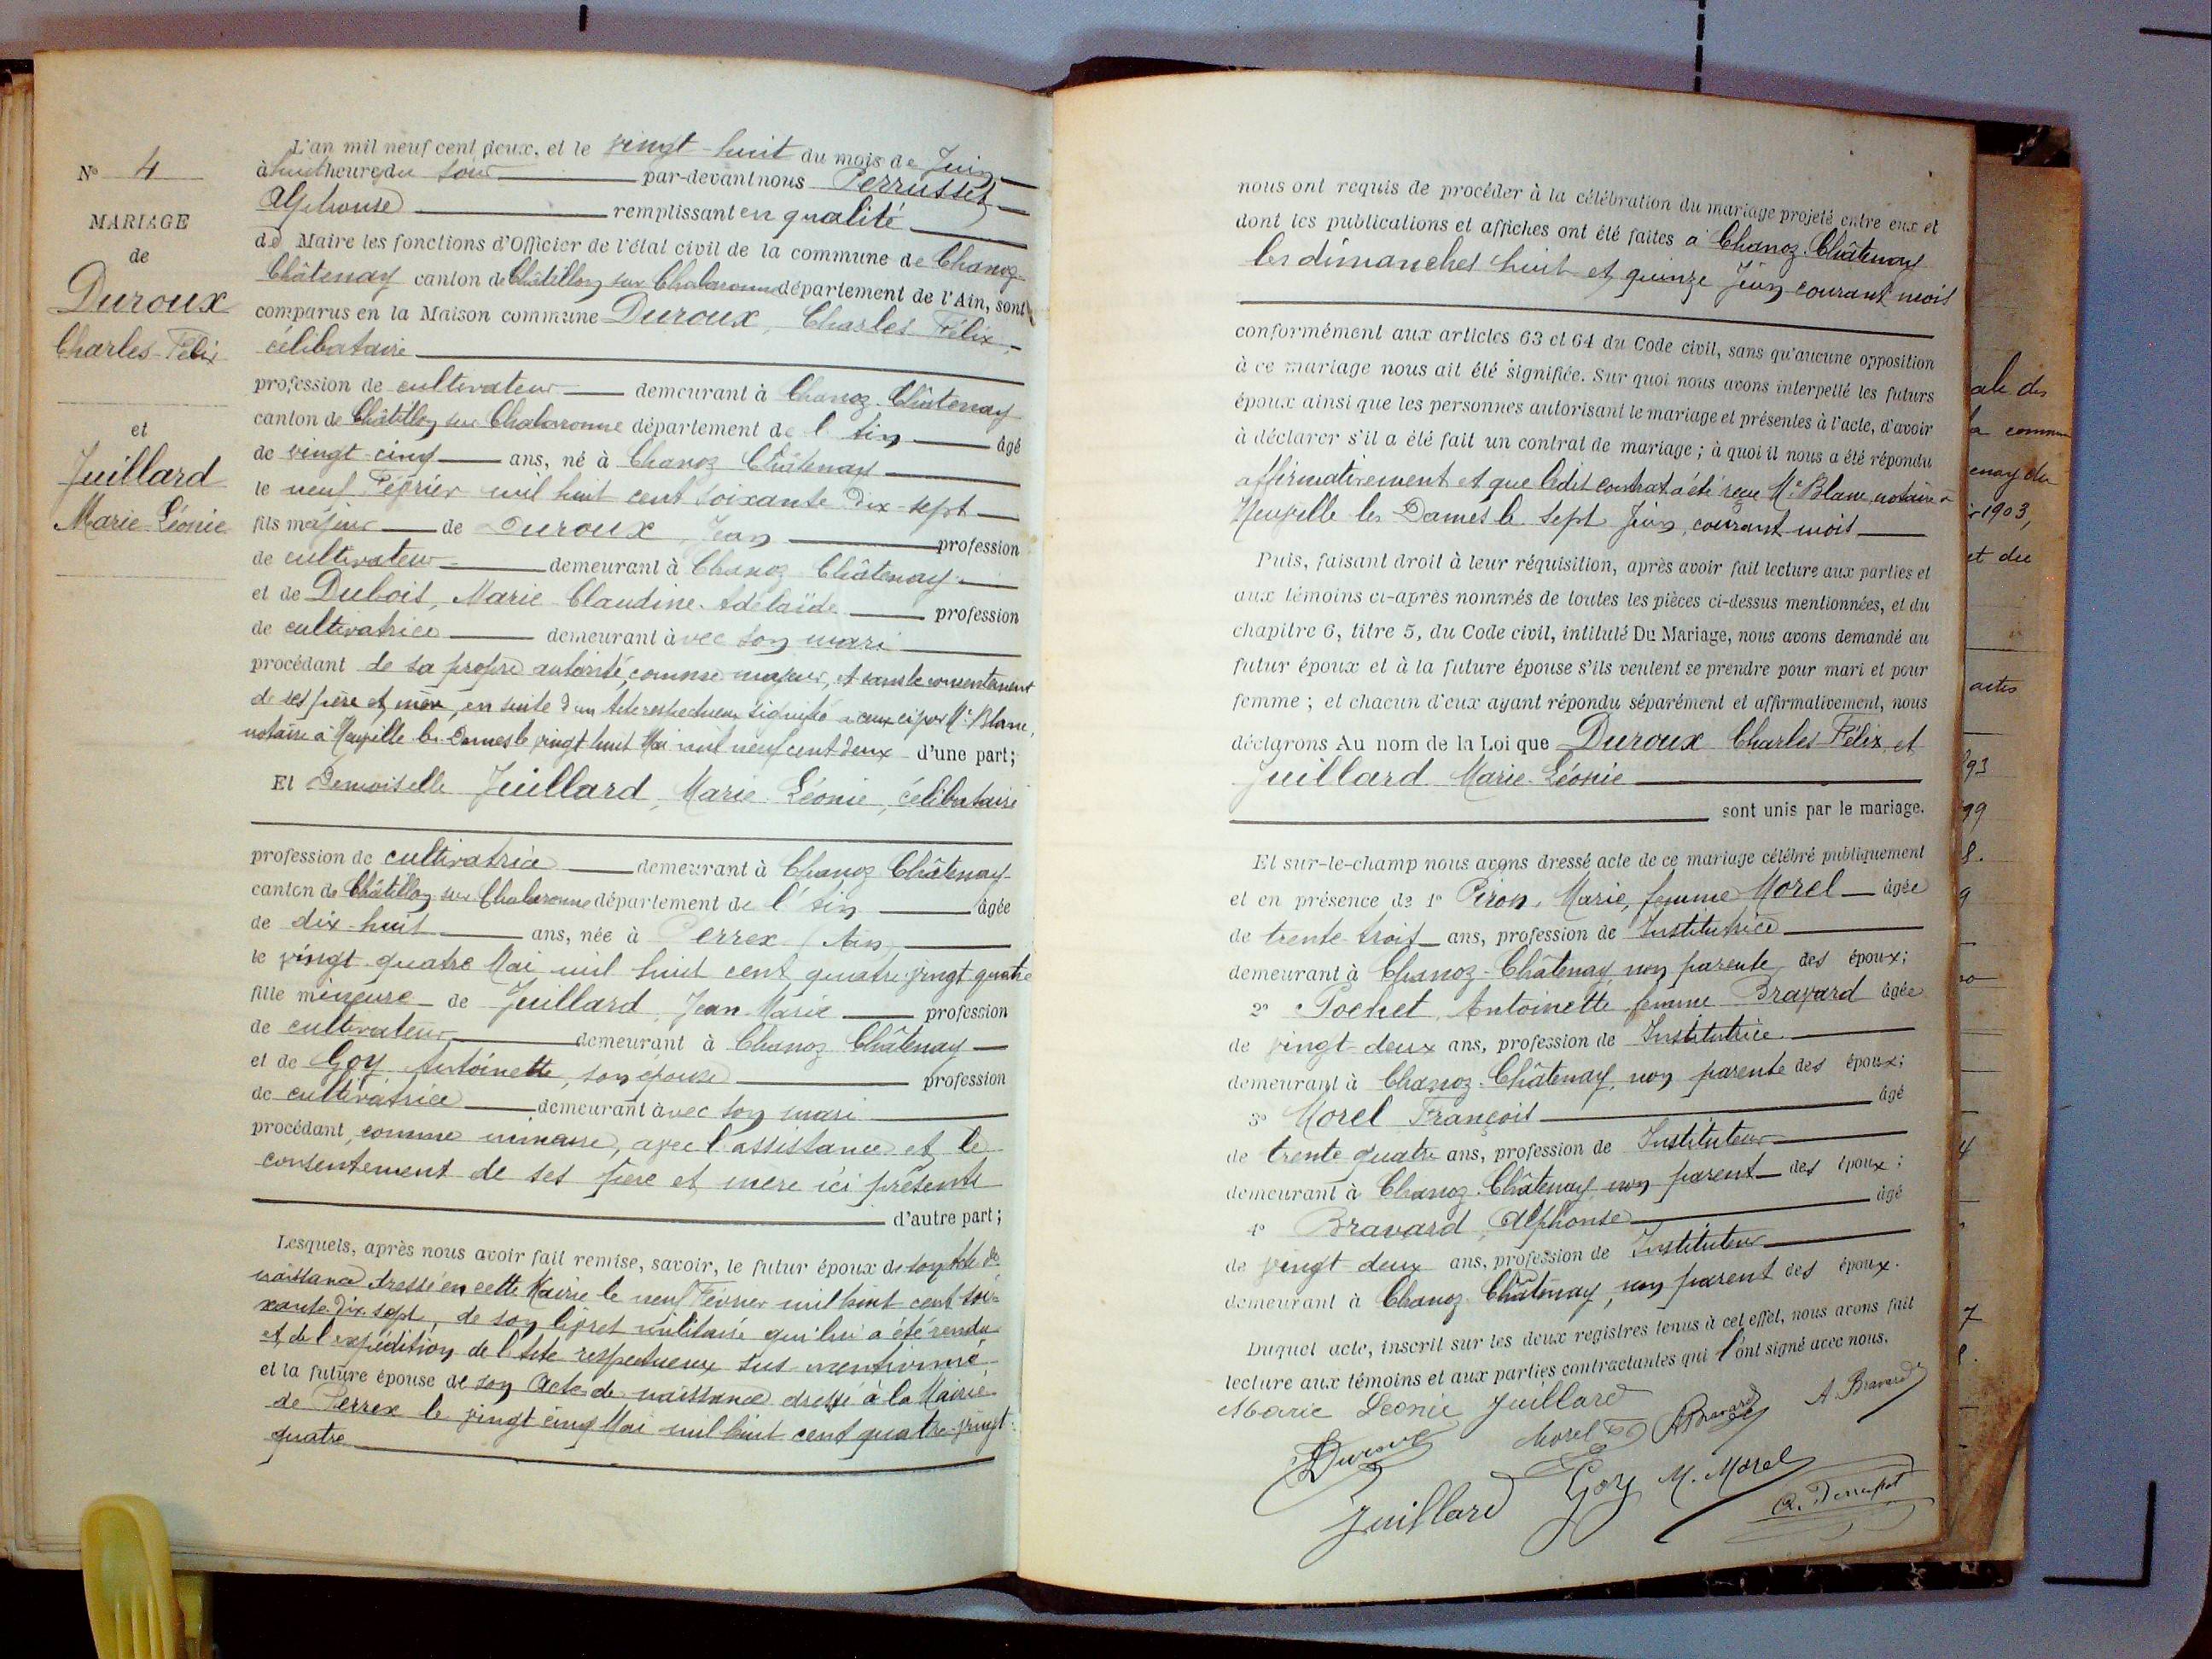 N° 4
MARIAGE
de
Duroux
Charles-Félix
et
Juillard
Marie-Léonie
L'an mil neuf cent deux, et le vingt-huit du mois de Juin
à huit heures du soir par-devant nous Perrusset
Alphonse remplissant en qualité
de Maire les fonctions d'Officier de l'état civil de la commune de Chanoz-
Châtenay canton de Châtillon sur Chalaronne département de l'Ain, sont
comparus en la Maison commune Duroux, Charles Félix,
célibataire
profession de cultivateur demeurant à Chanoz-Châtenay
canton de Châtillon sur Chalaronne département de l'Ain âgé
de vingt-cinq ans, né à Chanoz Châtenay
le neuf Février mil huit cent soixante dix-sept
fils majeur de Duroux, Jean profession
de cultivateur demeurant à Chanoz Châtenay
et de Dubois, Marie-Claudine-Adélaïde profession
de cultivatrice demeurant avec son mari
procédant de sa propre autorité, comme majeur, et sans le consentement
de ses père et mère, en suite d'un acte respectueux signifié à ceux-ci par Me Blanc,
notaire à Neuville les Dames le vingt huit Mai mil neuf cent deux d'une part;
Et Demoiselle Juillard, Marie-Léonie, célibataire
profession de cultivatrice demeurant à Chanoz Châtenay
canton de Châtillon sur Chalaronne département de l'Ain âgée
de dix-huit ans, née à Perrex (Ain)
le vingt-quatre Mai mil huit cent quatre-vingt quatre
fille mineure de Juillard, Jean-Marie profession
de cultivateur demeurant à Chanoz Châtenay
et de Goy Antoinette, son épouse profession
de cultivatrice demeurant avec son mari
procédant, comme mineure, avec l'assistance et le
consentement de ses père et mère ici présents
d'autre part;
Lesquels, après nous avoir fait remise, savoir, le futur époux de son acte de
naissance dressé en cette Mairie le neuf Février mil huit cent soi-
xante-dix-sept, de son livret militaire qui lui a été rendu
et de l'expédition de l'acte respectueux sus-mentionné
et la future épouse de son acte de naissance dressé à la Mairie
de Perrex le vingt cinq Mai mil huit cent quatre-vingt-
quatre
nous ont requis de procéder à la célébration du mariage projeté entre eux et
dont les publications et affiches ont été faites à Chanoz-Châtenay
les dimanches huit et quinze Juin courant mois
conformément aux articles 63 et 64 du Code civil, sans qu'aucune opposition
à ce mariage nous ait été signifiée. Sur quoi nous avons interpellé les futurs
époux ainsi que les personnes autorisant le mariage et présentes à l'acte, d'avoir
à déclarer s'il a été fait un contrat de mariage; à quoi il nous a été répondu
affirmativement et que ledit contrat a été reçu Me Blanc, notaire à
Neuville les Dames le sept Juin, courant mois
Puis, faisant droit à leur réquisition, après avoir fait lecture aux parties et
aux témoins ci-après nommés de toutes les pièces ci-dessus mentionnées, et du
chapitre 6, titre 5, du Code civil, intitulé Du Mariage, nous avons demandé au
futur époux et à la future épouse s'ils veulent se prendre pour mari et pour
femme; et chacun d'eux ayant répondu séparément et affirmativement, nous
déclarons Au nom de la Loi que Duroux Charles Félix, et
Juillard Marie-Léonie
sont unis par le mariage.
Et sur-le-champ nous avons dressé acte de ce mariage célébré publiquement
et en présence de 1° Piron, Marie, femme Morel âgée
de trente-trois ans, profession de Institutrice
demeurant à Chanoz-Châtenay, non parente des époux;
2° Pochet, Antoinette femme Bravard âgée
de vingt-deux ans, profession de Institutrice
demeurant à Chanoz-Châtenay, non parente des époux;
3° Morel François âgé
de trente quatre ans, profession de Instituteur
demeurant à Chanoz-Châtenay non parent des époux;
4° Bravard, Alphonse âgé
de vingt-deux ans, profession de Instituteur
demeurant à Chanoz-Châtenay, non parent des époux.
Duquel acte, inscrit sur les deux registres tenus à cet effet, nous avons fait
lecture aux témoins et aux parties contractantes qui l'ont signé avec nous.
Marie Leonie Juillard
Duroux Morel F ABravard A. Bravard
Juillard Goy M. Morel A. Perrusset
ale des
la commu
enay du
1903,
et du
actes
93
99
8.
9
4
7